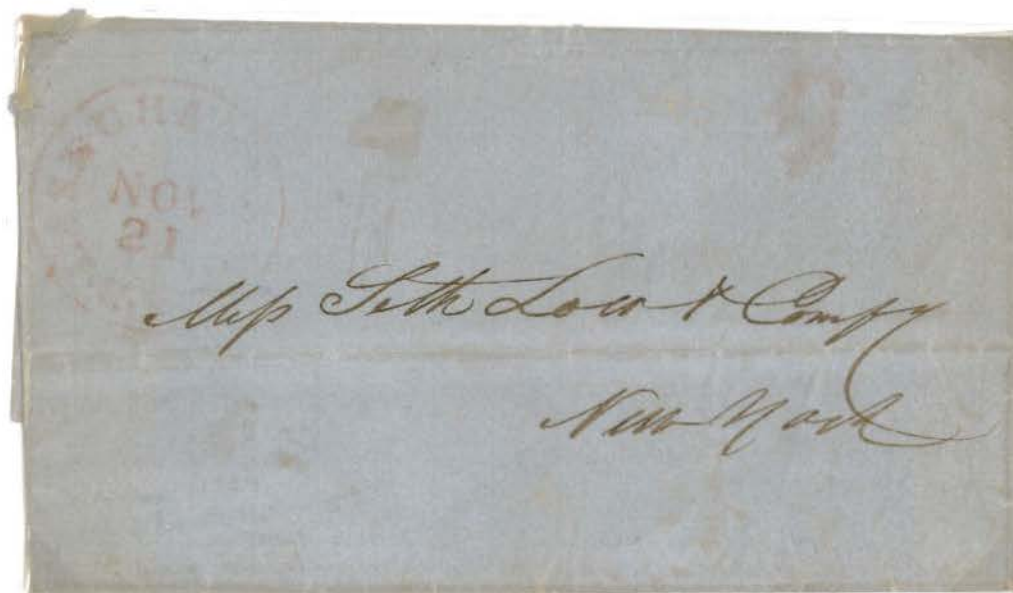 NOV
21
Mess Seth Low & Compy
New York